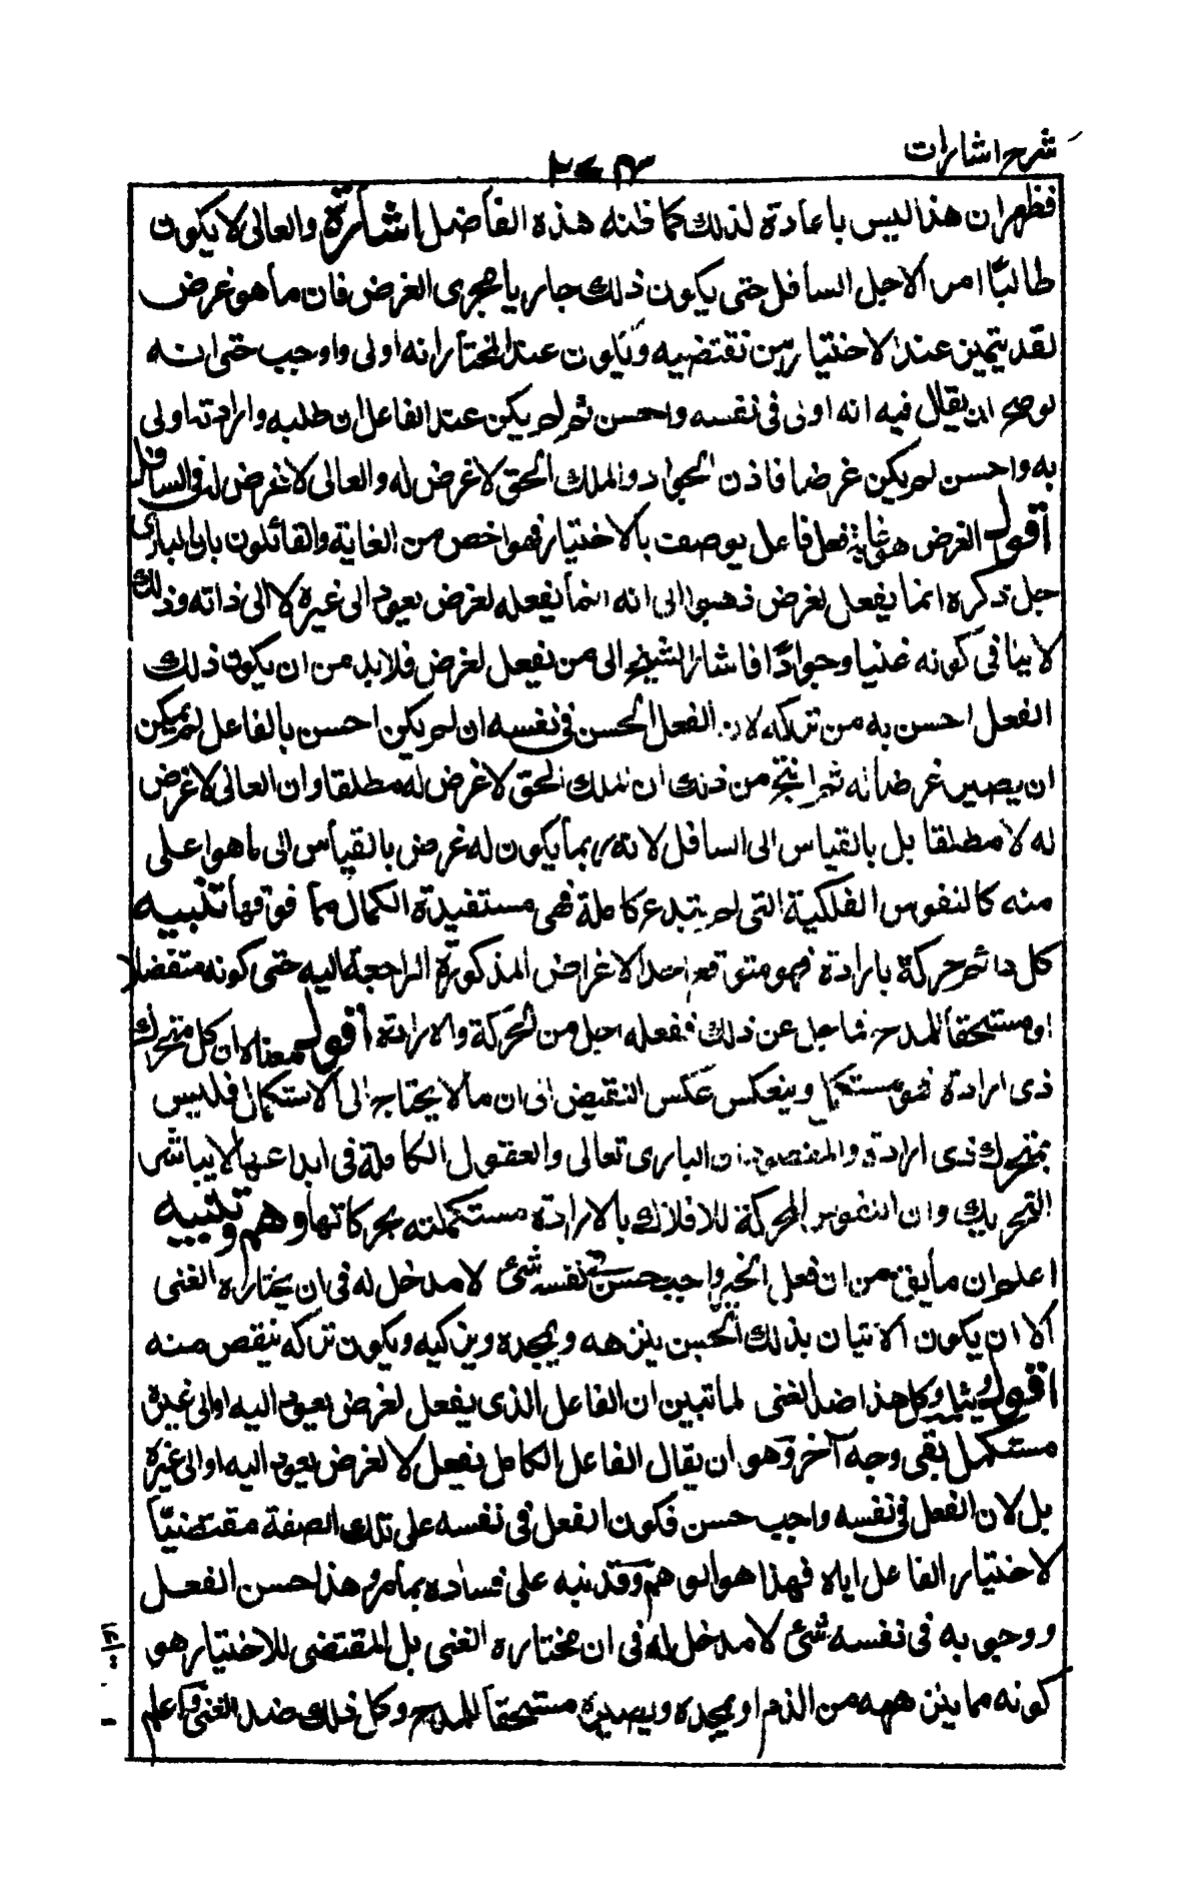 شرح اشارات
فظهر ان هذا ليس باعادة لذلك كما ظنه هذه الفاضل اشارة والعالى لا يكون
طالبًا امرا لاجل السافل حتى يكون ذلك جاريا مجرى الغرض فان ما هو غرض
لقد يتميز عند الاختيار من نقتضيه ويكون عند المختار انه اولى واوجب حتى انه
لو صح ان يقال فيه انه اولى فى نفسه واحسن ثم لم يكن عند الفاعل ان طلبه وارادته اولى
به واحسن لم يكن غرضا فاذن الجواد والملك الحق لا غرض له والعالى لا غرض له فى السافل
اقول الغرض هو غاية فعل فاعل يوصف بالاختيار فهو اخص من الغاية والقائلون بان البارى
جل ذكره انما يفعل لغرض ذهبوا الى انه انما يفعله لغرض يعود الى غيره لا الى ذاته وذلك
لا ينافى كونه غنيا وجوادًا فاشار الشيخ الى من يفعل لغرض فلا بد من ان يكون ذلك
الفعل احسن به من تركه لان الفعل الحسن فى نفسه ان لم يكن احسن بالفاعل لم يمكن
ان يصير غرضا له ثم انتج من ذلك ان الملك الحق لا غرض له مطلقا وان العالى لا غرض
له لا مطلقا بل بالقياس الى السافل لانه ربما يكون له غرض بالقياس الى ما هو اعلى
منه كالنفوس الفلكية التى لم يتبدع كاملة فهى مستفيدة الكمال مما فوقها تنبيه
كل دائم حركة بارادة فهو متوقع احد الاغراض المذكورة الراجعة اليه حتى كونه متفضلا
او مستحقا للمدح فما جل عن ذلك ففعله اجل من الحركة والارادة اقول معناه ان كل متحرك
ذى ارادة فهو مستكمل وينعكس عكس النقيض الى ان ما لا يحتاج الى الاستكمال فليس
بمتحرك ذى ارادة والمقصود ان البارى تعالى والعقول الكاملة فى ابداعها لا يباشر
التحريك وان النفوس المحركة للافلاك بالارادة مستكملته بحركاتها وهم وتنبيه
اعلم ان ما يقى من ان فعل الخير واجب حسن فى نفسه شئ لا مدخل له فى ان يختاره الغنى
الا ان يكون الاتيان بذلك الحسن ينزهه ويمجده ويزكيه ويكون تركه ينقص منه
اقول ويثلبه وكل هذا ضد الغنى لما تبين ان الفاعل الذى يفعل لغرض يعود اليه او الى غيره
مستكمل بقى وجه آخر وهو ان يقال الفاعل الكامل يفعل لا لغرض يعود اليه او الى غيره
بل لان الفعل فى نفسه واجب حسن فكون الفعل فى نفسه على تلك الصفة مقتضيًا
لاختيار الفاعل اياه فهذا هو الوهم وقد نبه على فساده بما مر وهذا حسن الفعل
ووجوبه فى نفسه شئ لا مدخل له فى ان مختاره الغنى بل المقتضى للاختيار هو
كونه مما ينزهه من الذم او يمجده ويصيره مستحقا للمدح وكل ذلك ضد الغنى واعلم